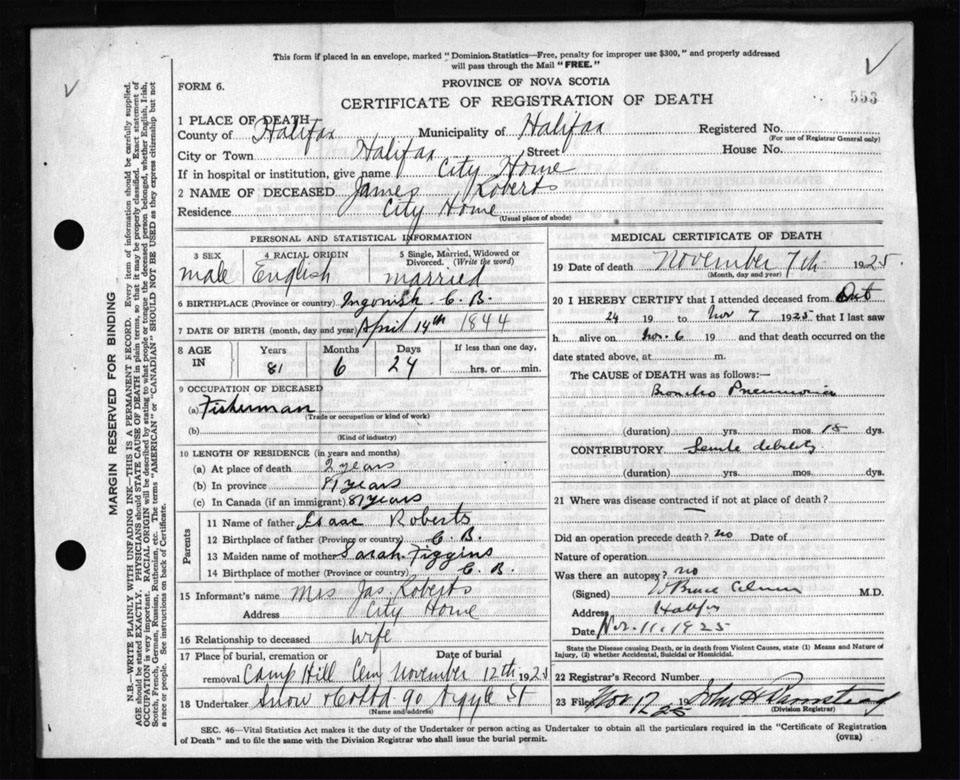 This form if placed in an envelope, marked "Dominion Statistics—Free, penalty for improper use $300," and properly addressed
will pass through the Mail "FREE."
FORM 6.
PROVINCE OF NOVA SCOTIA
CERTIFICATE OF REGISTRATION OF DEATH
553
1 PLACE OF DEATH
County of Halifax Municipality of Halifax Registered No.
(For use of Registrar General only)
City or Town Halifax Street House No.
If in hospital or institution, give name City Home
2 NAME OF DECEASED James Roberts
Residence City Home
(Usual place of abode)
PERSONAL AND STATISTICAL INFORMATION
3 SEX 4 RACIAL ORIGIN 5 Single, Married, Widowed or
Divorced. (Write the word)
male English married
6 BIRTHPLACE (Province or country) Ingonish C. B.
7 DATE OF BIRTH (month, day and year) April 14th 1844
8 AGE IN Years Months Days If less than one day,
81 6 24 hrs. or min.
9 OCCUPATION OF DECEASED
(a) Fisherman
(Trade or occupation or kind of work)
(b)
(Kind of industry)
10 LENGTH OF RESIDENCE (in years and months)
(a) At place of death 2 years
(b) In province 81 years
(c) In Canada (if an immigrant) 81 years
Parents
11 Name of father Isaac Roberts
12 Birthplace of father (Province or country) C. B.
13 Maiden name of mother Sarah Figgins
14 Birthplace of mother (Province or country) C. B.
15 Informant's name Mrs Jas. Roberts
Address City Home
16 Relationship to deceased wife
17 Place of burial, cremation or Date of burial
removal Camp Hill Cem November 12th 1925
18 Undertaker Snow & Co Ltd. 90 Argyle St
(Name and address)
MEDICAL CERTIFICATE OF DEATH
19 Date of death November 7th 1925.
(Month, day and year)
20 I HEREBY CERTIFY that I attended deceased from Oct
24 19 to Nov 7 1925 that I last saw
h alive on Nov. 6 19 and that death occurred on the
date stated above, at m.
The CAUSE of DEATH was as follows:—
Broncho Pneumonia
(duration) yrs. mos. 15 dys.
CONTRIBUTORY Senile debility
(duration) yrs. mos. dys.
21 Where was disease contracted if not at place of death?
Did an operation precede death? no Date of
Nature of operation
Was there an autopsy? no
(Signed) M.D.
Address Halifax
Date Nov. 11. 1925
State the Disease causing Death, or in death from Violent Causes, state (1) Means and Nature of
Injury, (2) whether Accidental, Suicidal or Homicidal.
22 Registrar's Record Number
23 Filed Nov 12 1925 John H
(Division Registrar)
SEC. 46—Vital Statistics Act makes it the duty of the Undertaker or person acting as Undertaker to obtain all the particulars required in the "Certificate of Registration
of Death" and to file the same with the Division Registrar who shall issue the burial permit.
(OVER)
MARGIN RESERVED FOR BINDING
N.B.—WRITE PLAINLY WITH UNFADING INK—THIS IS A PERMANENT RECORD. Every item of information should be carefully supplied.
AGE should be stated EXACTLY. PHYSICIANS should STATE CAUSE OF DEATH in plain terms, so that it may be properly classified. Exact statement of
OCCUPATION is very important. RACIAL ORIGIN will be described by stating to what people or tongue the deceased person belonged, whether English, Irish,
Scotch, French, German, Russian, Ruthenian, etc. The terms "AMERICAN" or "CANADIAN" SHOULD NOT BE USED as they express citizenship but not
a race or people. See instructions on back of Certificate.